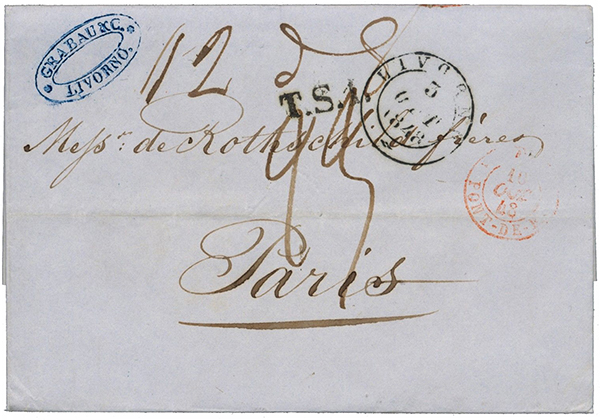 GRABAU & C.
LIVORNO.
12
T.S.A.
LIVORNO
5
OTT
1848
Messrs. de Rothschild frères
10
OCT
48
PONT-DE-
Paris